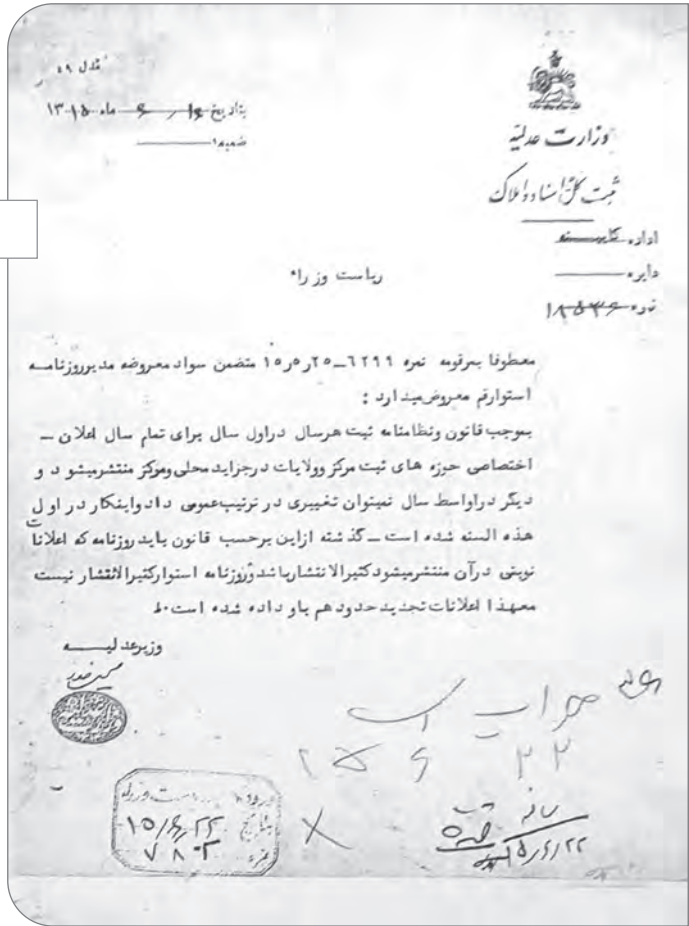 مدل ۵۹
بتاریخ ۱۶ ر ۶ ماه ۱۳۱۵
ضمیمه
وزارت عدلیه
ثبت کل اسناد و املاک
اداره کابینه
دایره
نمره ۱۸۵۳۶
ریاست وزراء
معطوفا بمرقومه نمره ٦٢٩٩ــ٢٥ر٥ر١٥ متضمن سواد معروضه مدیرروزنامه
استوارقم معروض میدارد :
بموجب قانون ونظامنامه ثبت هرسال دراول سال برای تمام سال اعلان ــ
اختصاصی حوزه های ثبت مرکز وولایات درجراید محلی ومرکز منتشرمیشو د و
دیگر دراواسط سال نمیتوان تغییری در ترتیب عمومی داد واینکار در اول
هذه السنه شده است ــ گذشته ازاین برحسب قانون باید روزنامه که اعلانات
نوبتی درآن منتشرمیشود کثیرالانتشارباشد وروزنامه استوارکثیرالانتشار نیست
معهذا اعلانات تجدید حدود هم باو داده شده است ۰ط
وزیرعدلیــه
۲۲ ۶ ۱۵
ریاست وزراء
بتاریخ ۱۵/۶/۲۲
نمره ۷۸۰۲
۱۵/۶/۲۲